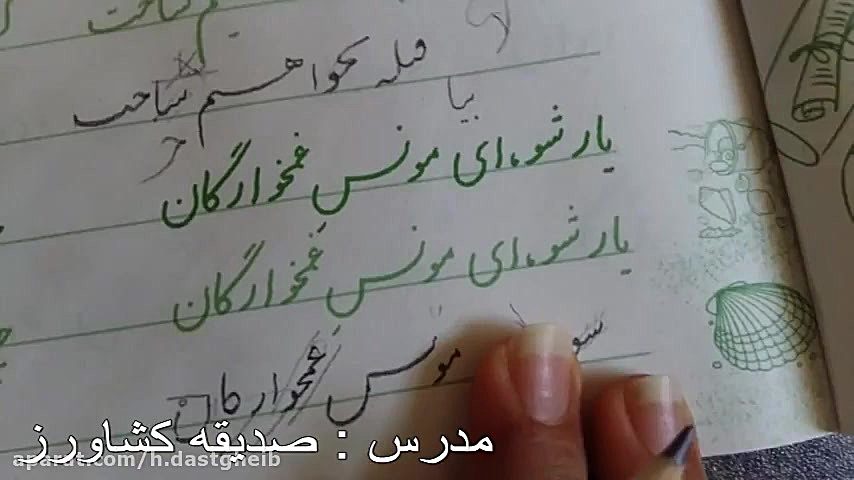 قبله بخواهیم ساخت
بیا
یار شو، ای مونس غمخوارگان
یار شو، ای مونس غمخوارگان
شو مونس غمخوارگان
مدرس : صدیقه کشاورز
aparat.com/h.dastgheib